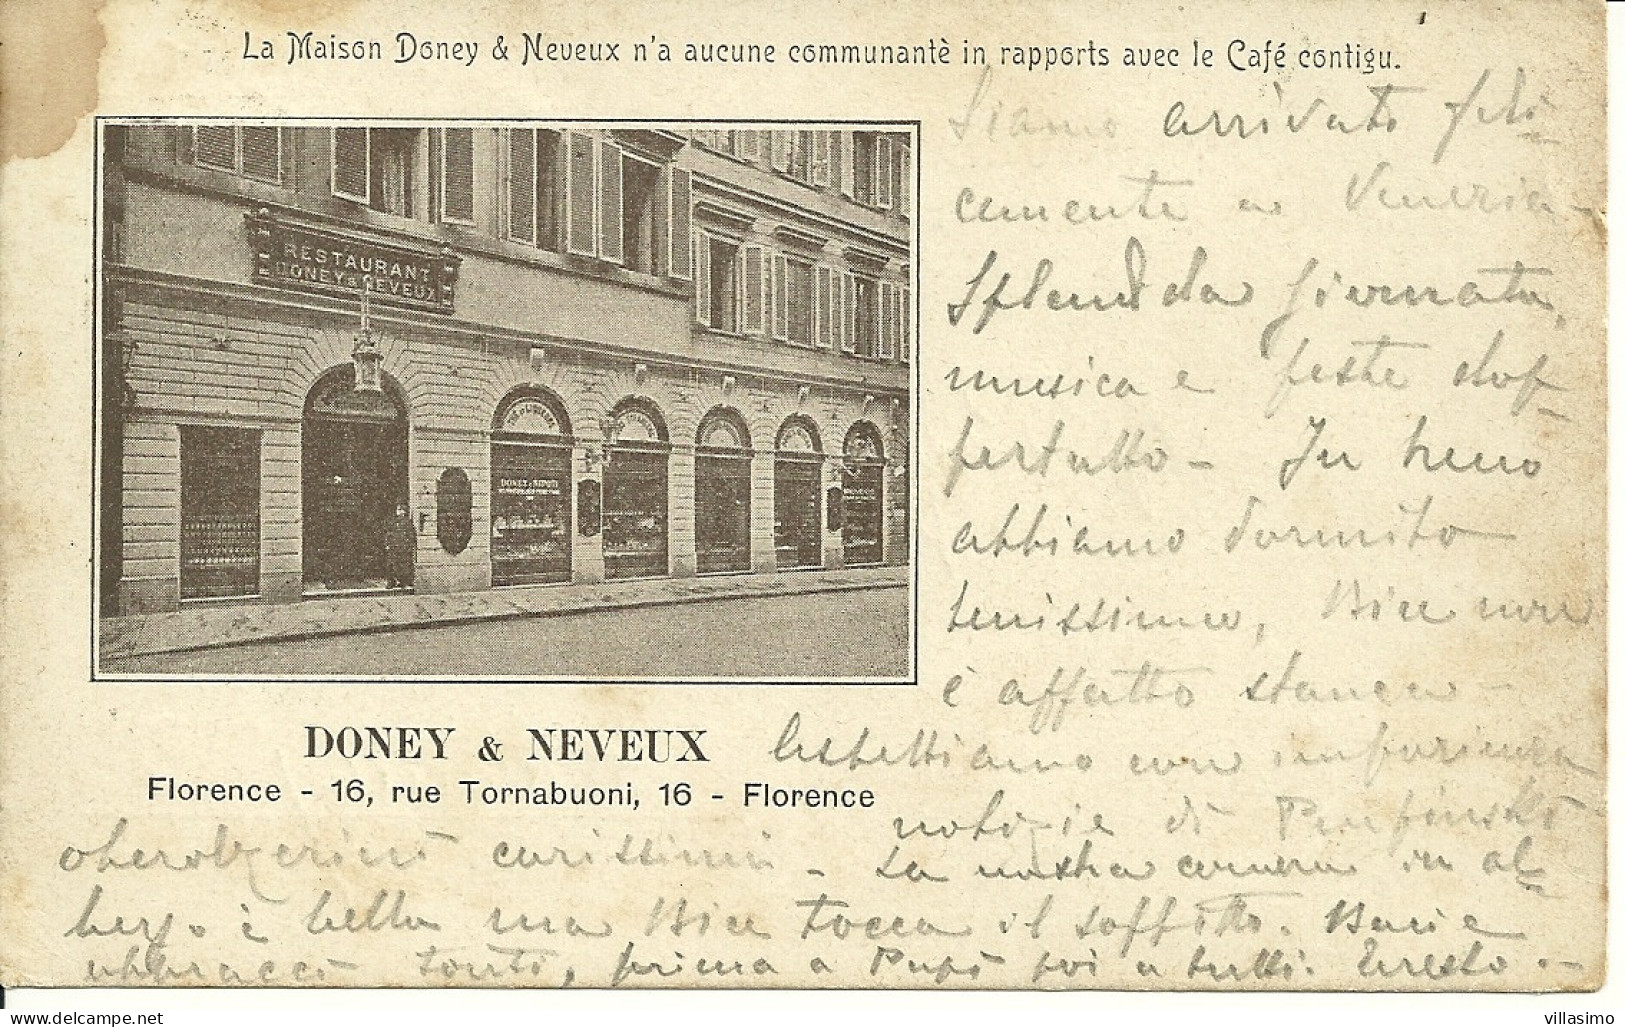 La Maison Doney & Neveux n'a aucune communantè in rapports avec le Café contigu.
RESTAURANT
DONEY & NEVEUX
DONEY & NIPOTI
DONEY & NEVEUX
Florence - 16, rue Tornabuoni, 16 - Florence
Siamo arrivati feli
cemente a Venezia -
Splendida giornata,
musica e feste dap
pertutto - In treno
abbiamo dormito
benissimo, Bice non
è affatto stanca -
Aspettiamo con
notizie di
carissimi - La nostra camera in al
bergo è bella ma Bice tocca il soffitto. Baci e
abbracci tanti, prima a Pupi poi a tutti. Ernesto -
villasimo
www.delcampe.net